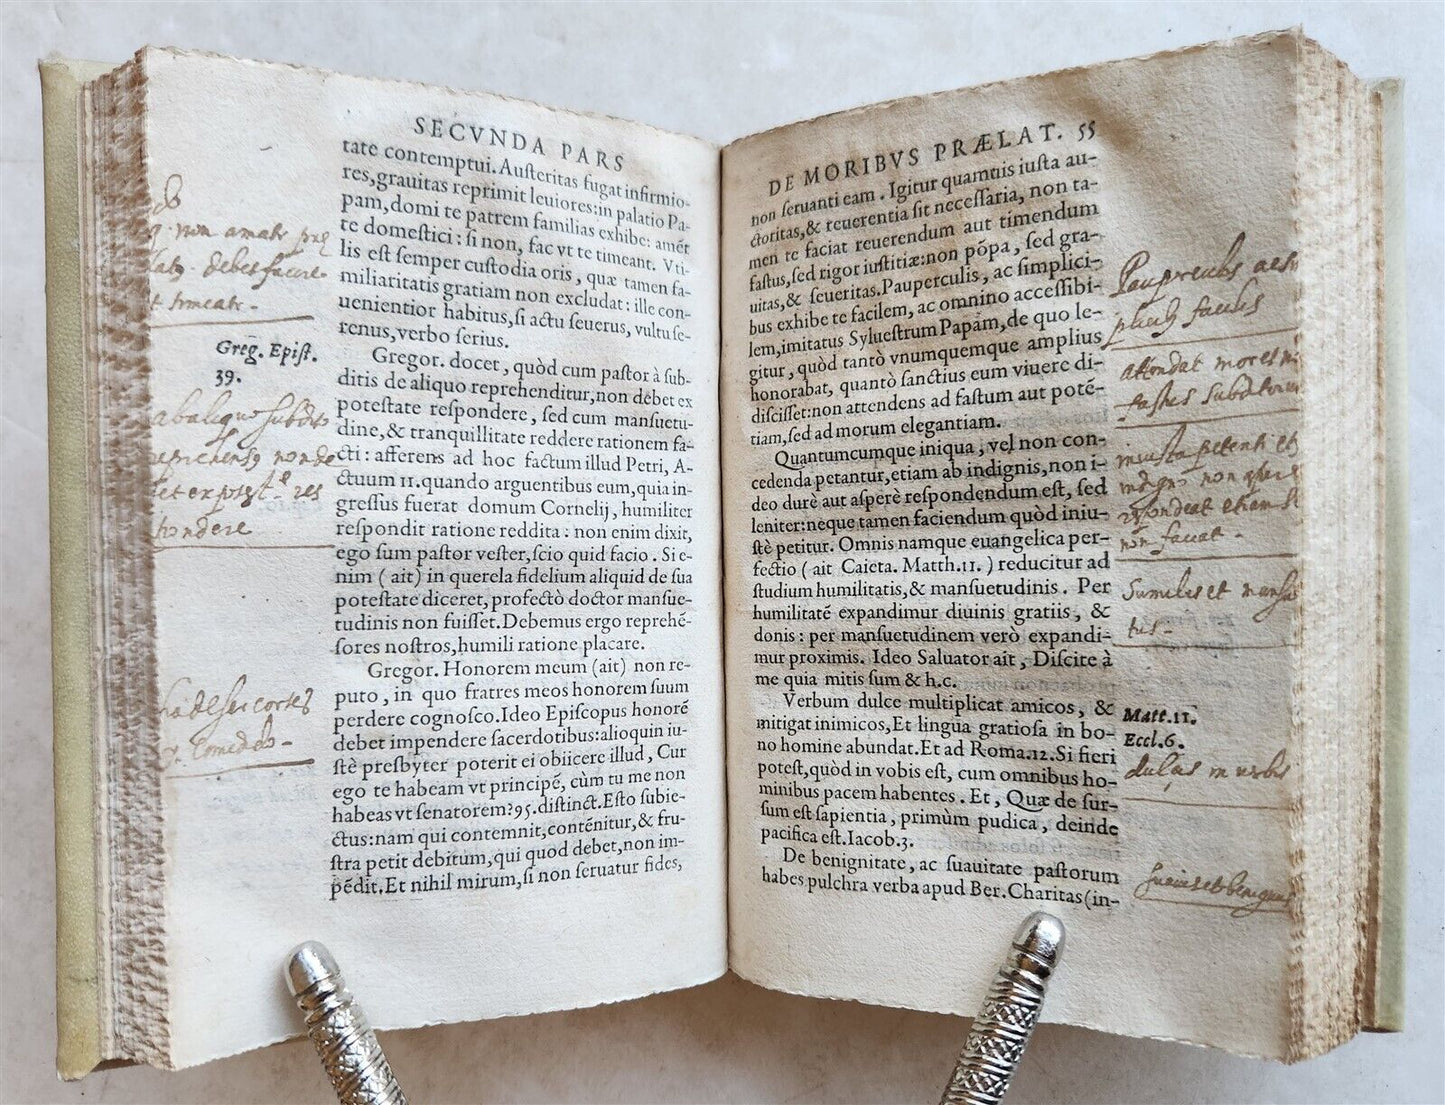 SECVNDA PARS
tate contemptui. Auſteritas fugat infirmio-
res, grauitas reprimit leuiores: in palatio Pa-
pam, domi te patrem familias exhibe: amēt
te domeſtici: ſi non, fac vt te timeant. Vti-
lis eſt ſemper cuſtodia oris, quæ tamen fa-
miliaritatis gratiam non excludat: ille con-
uenientior habitus, ſi actu ſeuerus, vultu ſe-
renus, verbo ſerius.
Gregor. docet, quòd cum paſtor à ſub-
ditis de aliquo reprehenditur, non debet ex
poteſtate reſpondere, ſed cum manſuetu-
dine, & tranquillitate reddere rationem fa-
cti: afferens ad hoc factum illud Petri, A-
ctuum 11. quando arguentibus eum, quia in-
greſſus fuerat domum Cornelij, humiliter
reſpondit ratione reddita: non enim dixit,
ego ſum paſtor veſter, ſcio quid facio. Si e-
nim (ait) in querela fidelium aliquid de ſua
poteſtate diceret, profectò doctor manſue-
tudinis non fuiſſet. Debemus ergo reprehē-
ſores noſtros, humili ratione placare.
Gregor. Honorem meum (ait) non re-
puto, in quo fratres meos honorem ſuum
perdere cognoſco. Ideo Epiſcopus honorē
debet impendere ſacerdotibus: alioquin iu-
ſtè preſbyter poterit ei obiicere illud, Cur
ego te habeam vt principē, cùm tu me non
habeas vt ſenatorem? 95. diſtinct. Eſto ſubie-
ctus: nam qui contemnit, contēnitur, & fru-
ſtra petit debitum, qui quod debet, non im-
pēdit. Et nihil mirum, ſi non ſeruatur fides,
non amatr
debes facere
et timeatr.
Greg. Epiſt.
39.
ab aliquo ſubdito
non de
et ex potest.te res
pondere
DE MORIBVS PRÆLAT. 55
non ſeruanti eam. Igitur quamuis iuſta au-
ctoritas, & reuerentia ſit neceſſaria, non ta-
men te faciat reuerendum aut timendum
faſtus, ſed rigor iuſtitiæ: non pōpa, ſed gra-
uitas, & ſeueritas. Pauperculis, ac ſimplici-
bus exhibe te facilem, ac omnino acceſſibi-
lem, imitatus Sylueſtrum Papam, de quo le-
gitur, quòd tantò vnumquemque amplius
honorabat, quantò ſanctius eum viuere di-
diſciſſet: non attendens ad faſtum aut potē-
tiam, ſed ad morum elegantiam.
Quantumcumque iniqua, vel non con-
cedenda petantur, etiam ab indignis, non i-
deo durè aut aſperè reſpondendum eſt, ſed
leniter: neque tamen faciendum quòd iniu-
ſtè petitur. Omnis namque euangelica per-
fectio (ait Caieta. Matth. 11.) reducitur ad
ſtudium humilitatis, & manſuetudinis. Per
humilitatē expandimur diuinis gratiis, &
donis: per manſuetudinem verò expandi-
mur proximis. Ideo Saluator ait, Diſcite à
me quia mitis ſum & h.c.
Verbum dulce multiplicat amicos, &
mitigat inimicos, Et lingua gratioſa in bo-
no homine abundat. Et ad Roma. 12. Si fieri
poteſt, quòd in vobis eſt, cum omnibus ho-
minibus pacem habentes. Et, Quæ de ſur-
ſum eſt ſapientia, primùm pudica, deinde
pacifica eſt. Iacob. 3.
De benignitate, ac ſuauitate paſtorum
habes pulchra verba apud Ber. Charitas (in-
Pauperculis
faciles
attendat mores
subditorum
iniusta petenti et
indigno non asper
respondeat etiam si
non faciat.
Humiles et mansue
tus.
Matt. 11.
Eccl. 6.
dulcis in verbis
suavis et benignus